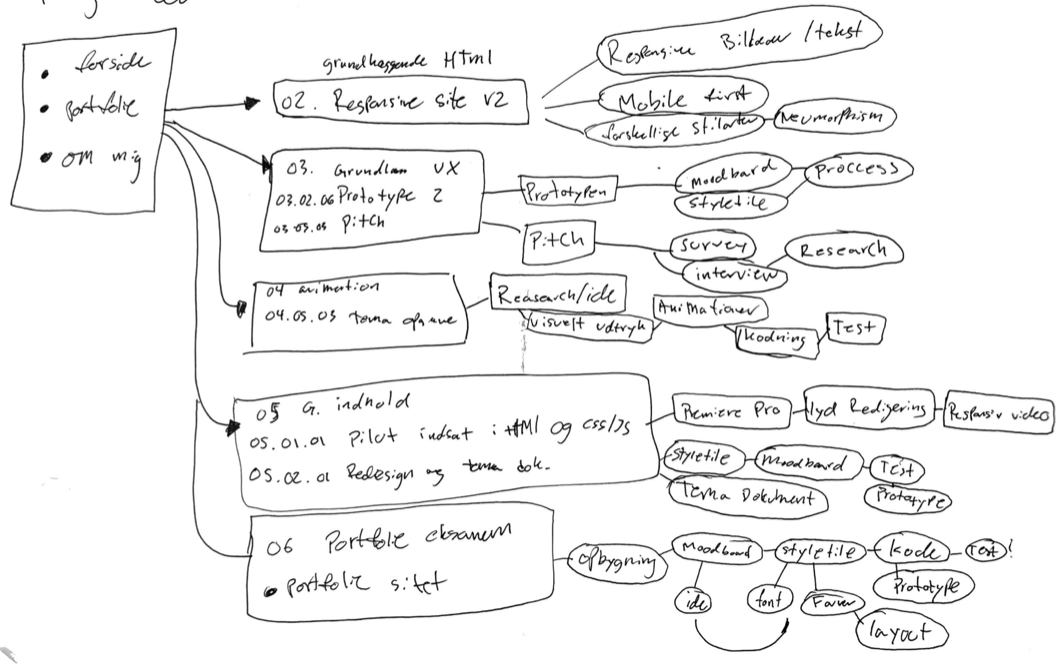 forside
portfolie
om mig
grundlæggende HTml
02. Responsive site v2
Responsive Billeder /tekst
Mobile first
forskellige stilarter
Neumorphism
03. Grundlæn UX
03.02.06 Prototype 2
03.03.03 Pitch
Prototypen
Moodboard
styletile
Proccess
Pitch
survey
interview
Research
04 animation
04.03.03 tema opgave
Reasearch/ide
visuelt udtryk
Animationer
kodning
Test
05 G. indhold
05.01.01 Pilot indsat i HTMl og css/Js
05.02.01 Redesign og tema dok.
Premiere Pro
lyd Redigering
Responsiv video
styletile
Moodboard
Test
Tema Dokument
Prototype
06 Portfolie eksamen
portfolie sitet
opbygning
Moodboard
styletile
kode
Test!
Prototype
ide
font
Farver
layout